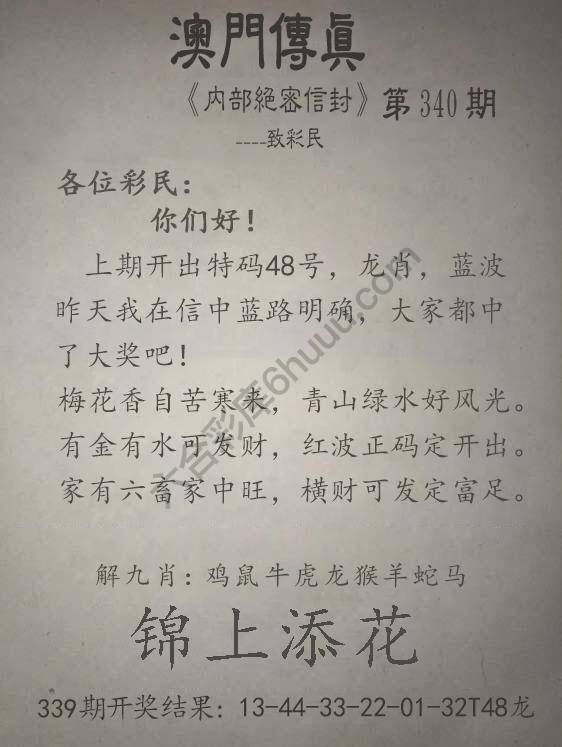 澳門傳真
《内部絕密信封》第340期
----致彩民
各位彩民：
你们好！
上期开出特码48号，龙肖，蓝波
昨天我在信中蓝路明确，大家都中
了大奖吧！
梅花香自苦寒来，青山绿水好风光。
有金有水可发财，红波正码定开出。
家有六畜家中旺，横财可发定富足。
六合彩库6huuu.com
解九肖：鸡鼠牛虎龙猴羊蛇马
锦上添花
339期开奖结果：13-44-33-22-01-32T48龙